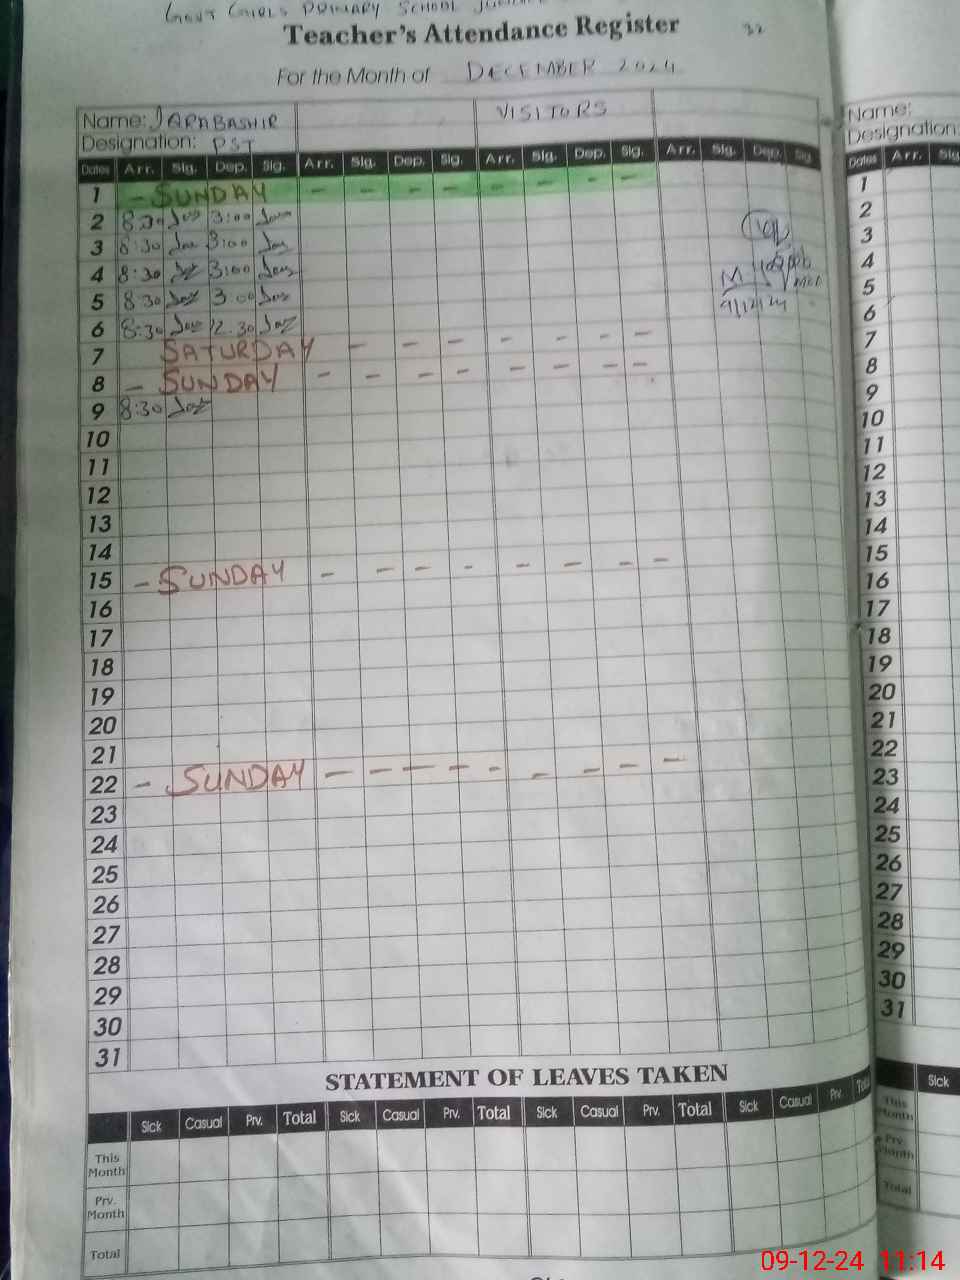 GOVT GIRLS PRIMARY SCHOOL
Teacher's Attendance Register
32
For the Month of DECEMBER 2024
Name: IARABASHIR VISITORS
Designation: PST
Dates Arr. Sig. Dep. Sig. Arr. Sig. Dep. Sig. Arr. Sig. Dep. Sig. Arr. Sig. Dep. Sig.
1 - SUNDAY - - - - - - - -
2 8:30 3:00
3 8:30 3:00
4 8:30 3:00
5 8:30 3:00
6 8:30 12:30
7 SATURDAY - - - - - - -
8 - SUNDAY - - - - - - - -
9 8:30
10
11
12
13
14
15 - SUNDAY - - - - - - - -
16
17
18
19
20
21
22 - SUNDAY - - - - - - - - -
23
24
25
26
27
28
29
30
31
9/12/24
STATEMENT OF LEAVES TAKEN
Sick Casual Prv. Total Sick Casual Prv. Total Sick Casual Prv. Total Sick Casual Prv. Total
This Month
Prv. Month
Total
Name:
Designation:
Dates Arr. Sig
1
2
3
4
5
6
7
8
9
10
11
12
13
14
15
16
17
18
19
20
21
22
23
24
25
26
27
28
29
30
31
Sick
This Month
Prv. Month
Total
09-12-24 11:14